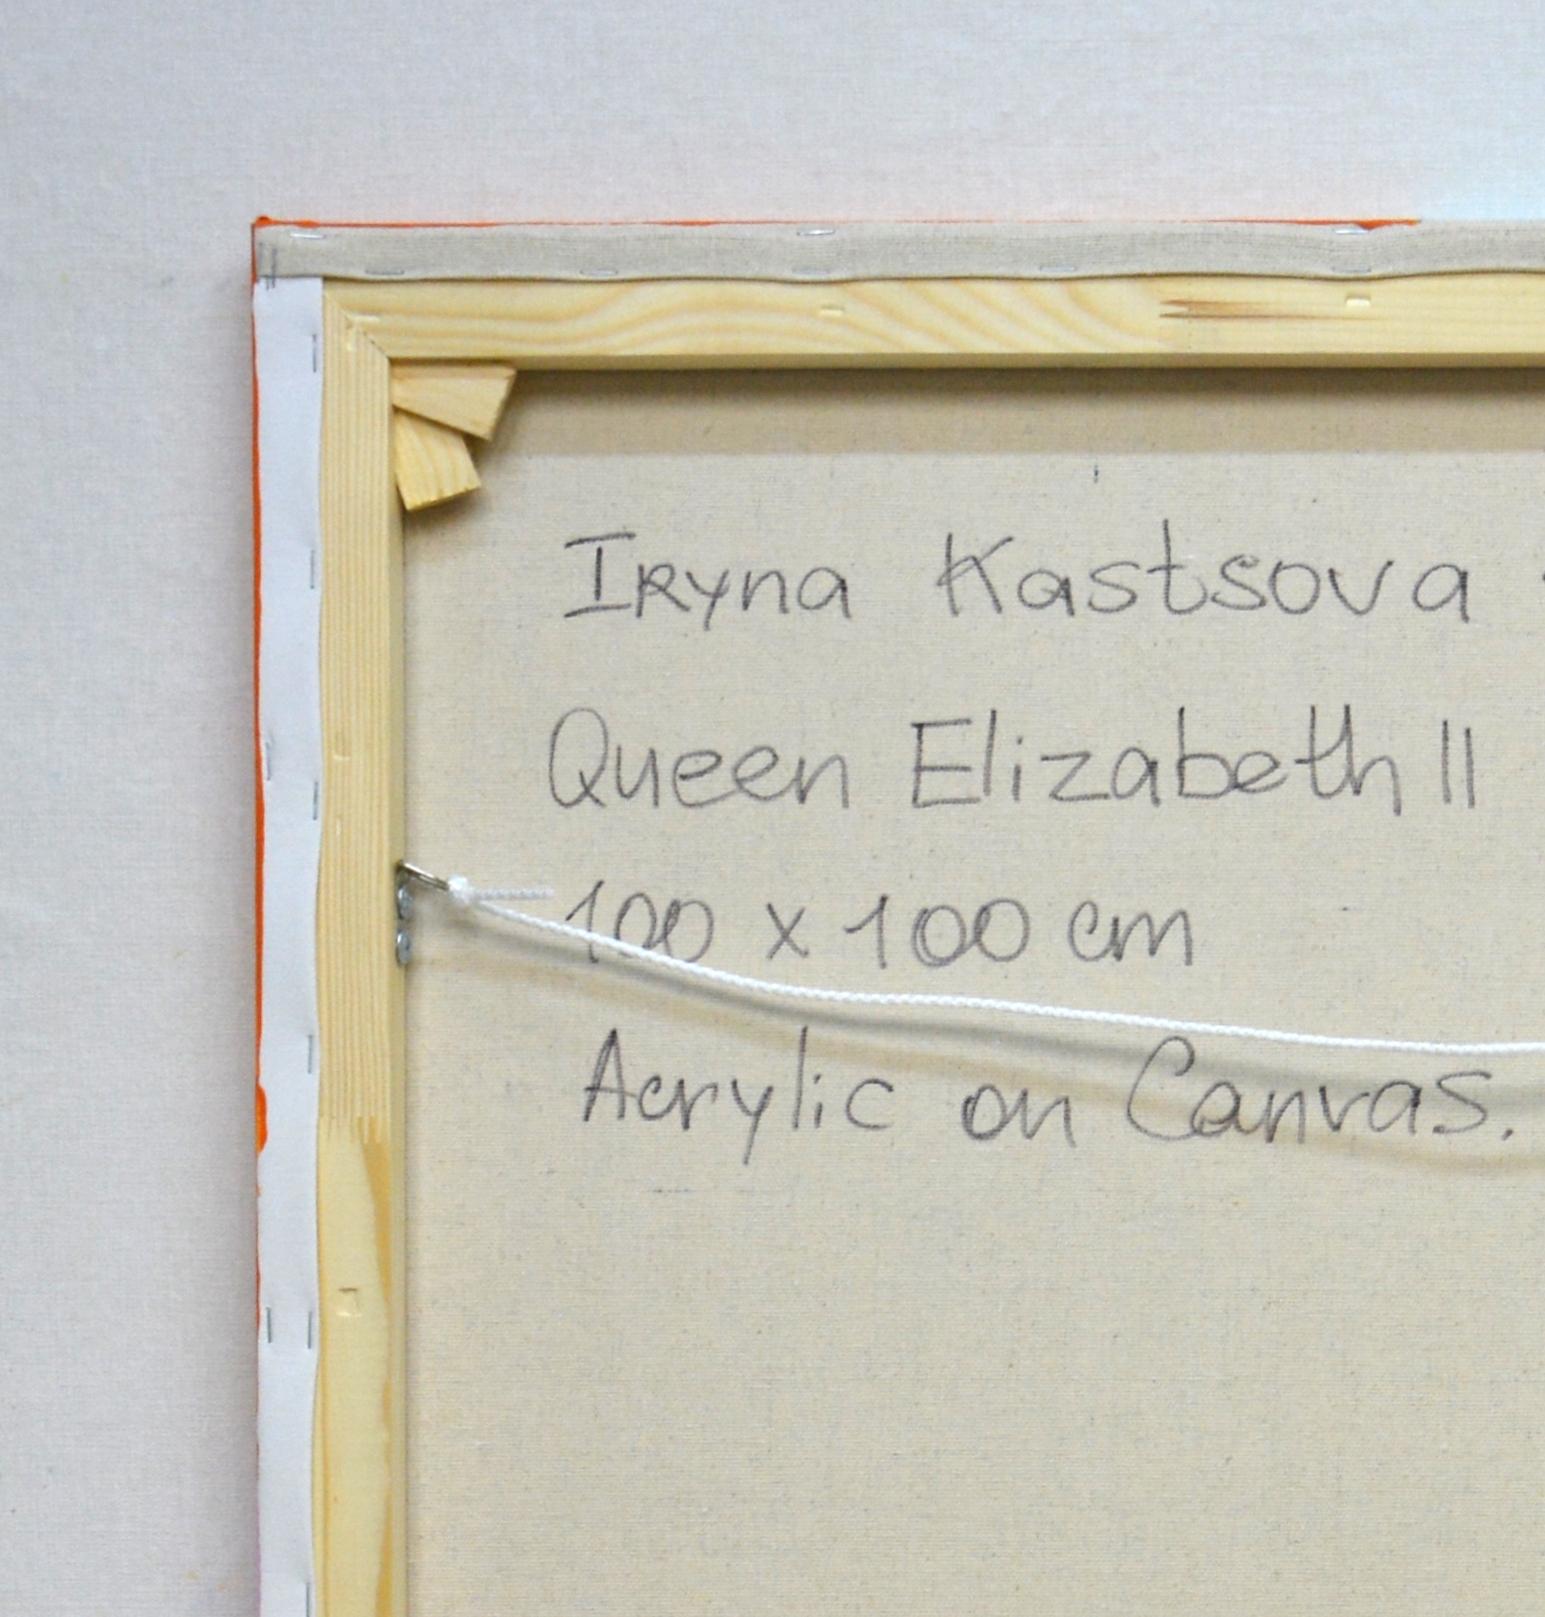 Iryna Kastsova
Queen Elizabeth II
100 x 100 cm
Acrylic on Canvas.